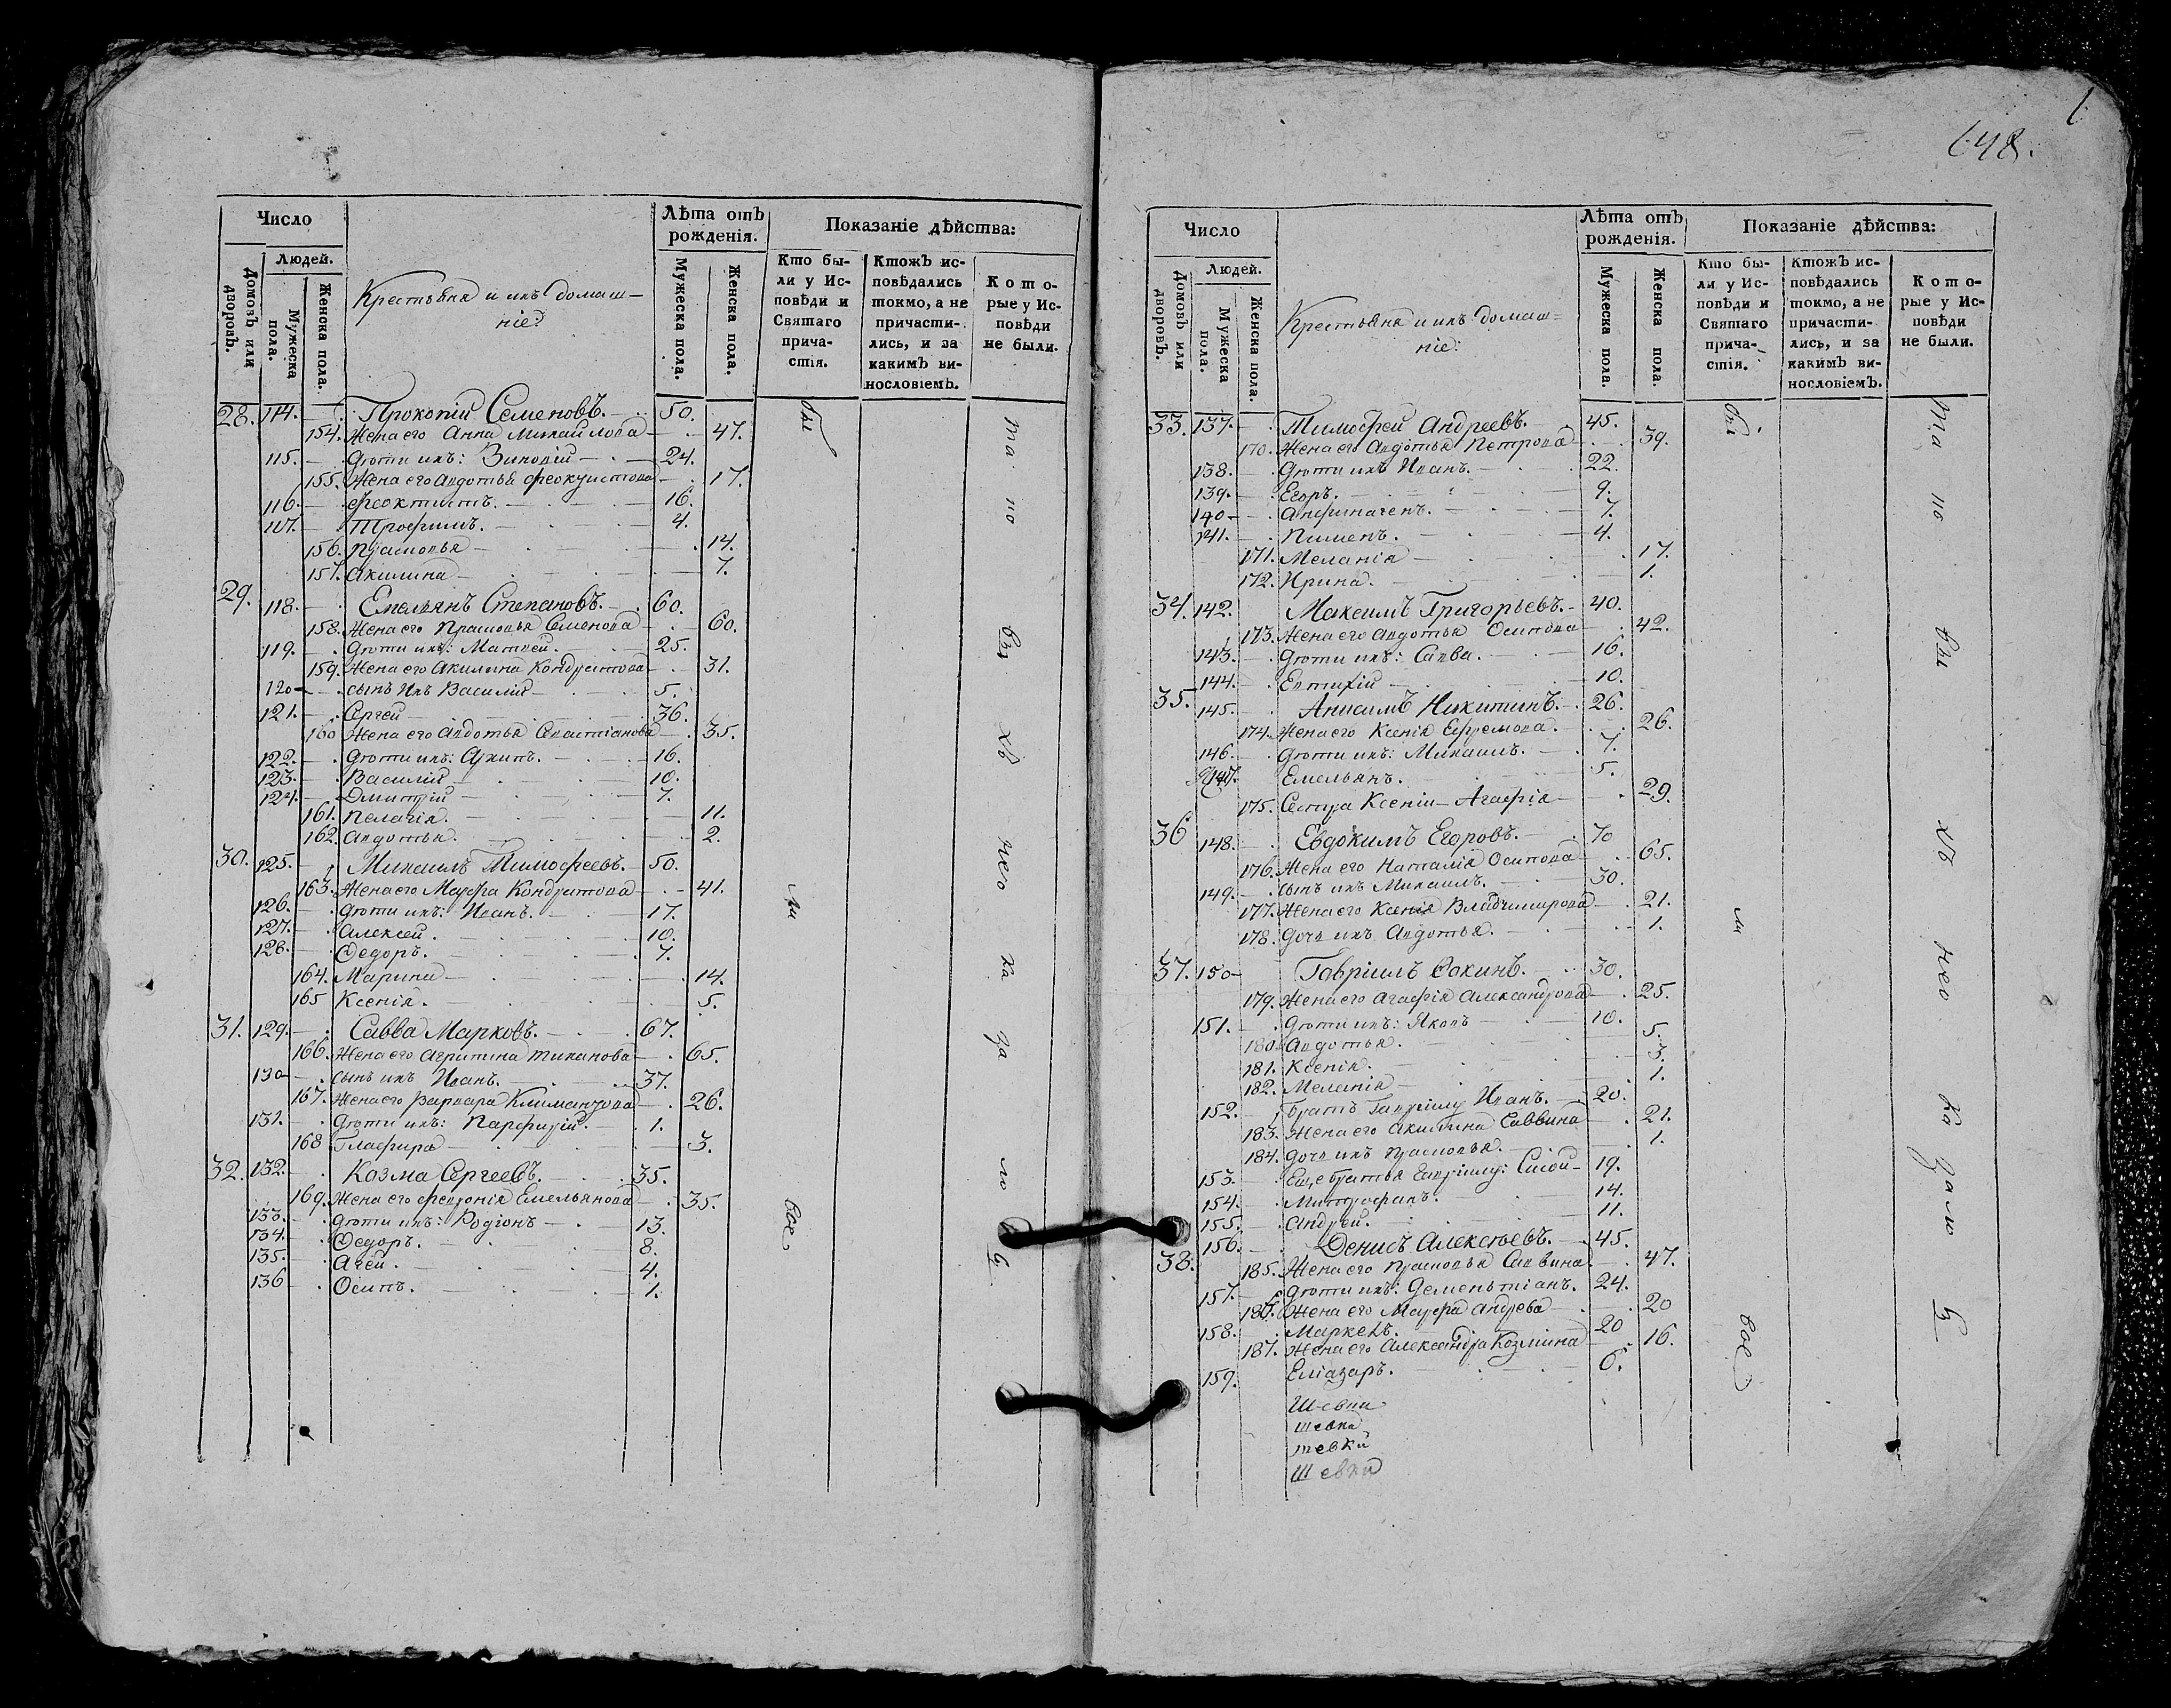 Число
Лѣта отъ рожденія.
Показаніе дѣйства:
Домовъ или дворовъ.
Людей.
Мужеска пола.
Женска пола.
Крестьяна и ихъ домаш-
ніе:
Мужеска пола.
Женска пола.
Кто бы-
ли у Ис-
повѣди и
Святаго
прича-
стія.
Ктожъ ис-
повѣдались
токмо, а не
причасти-
лись, и за
какимъ ви-
нословіемъ.
Кото-
рые у Ис-
повѣди
не были.
28. 114. Прокопій Семеновъ. 50.
154. Жена его Анна Михайлова 47.
115. Дѣти ихъ: 24.
155. Жена его Авдотья Феоктистова 17.
116. Феоктистъ. 16.
117. Трофимъ. 4.
156. Прасковья 14.
157. Акилина 7.
29. 118. Емельянъ Степановъ. 60.
158. Жена его Прасковья Семенова 60.
119. Дѣти ихъ: Матвей. 25.
159. Жена его Акилина Кондратова 31.
120 сынъ ихъ Василій 5.
121. Сергей 36.
160 Жена его Авдотья Севастіанова 35.
122. Дѣти ихъ: Архипъ. 16.
123. Василій 10.
124. Дмитрій 7.
161. Пелагія. 11.
162. Авдотья. 2.
30. 125. Михаилъ Тимофеевъ. 50.
163. Жена его Марфа Кондратова 41.
126. Дѣти ихъ: Иванъ. 17.
127. Алексей. 10.
128. Федоръ. 7.
164. Марина 14.
165 Ксенія. 5.
31. 129. Савва Марковъ. 67.
166. Жена его Агрипина 65.
130 сынъ ихъ Иванъ. 37.
167. Жена его Варвара 26.
131. Дѣти ихъ: Парфирій. 1.
168 Глафира 3.
32. 132. Козма Сергеевъ. 35.
169. Жена его Феврония Емельянова 35.
133. Дѣти ихъ: Родіонъ 13.
134. Федоръ. 8.
135. Агей. 4.
136 Осипъ. 1.
бы
ли
вое
та
но
вы
хъ
нео
ка
за
ло
ъ
648.
Число
Лѣта отъ рожденія.
Показаніе дѣйства:
Домовъ или дворовъ.
Людей.
Мужеска пола.
Женска пола.
Крестьяна и ихъ домаш-
ніе:
Мужеска пола.
Женска пола.
Кто бы-
ли у Ис-
повѣди и
Святаго
прича-
стія.
Ктожъ ис-
повѣдались
токмо, а не
причасти-
лись, и за
какимъ ви-
нословіемъ.
Кото-
рые у Ис-
повѣди
не были.
33. 137. Тимофей Андреевъ. 45.
170. Жена его Авдотья Петрова 39.
138. Дѣти ихъ Иванъ. 22.
139. Егоръ. 9.
140 7.
141. Пименъ. 4.
171. Меланія 17.
172. Ирина. 1.
34. 142. Максимъ Григорьевъ. 40.
173. Жена его Авдотья Осипова 42.
143. Дѣти ихъ: Савва. 16.
144. Евтихій 10.
35. 145. Анисимъ Никитинъ. 26.
174. Жена его Ксенія Ефремова. 26.
146. Дѣти ихъ: Михаилъ. 7.
147. Емельянъ. 5.
175. Сестра Ксеніи Агафія 29.
36 148. Евдокимъ Егоровъ. 70
176. Жена его Наталія Осипова 65.
149. сынъ ихъ Михаилъ. 30.
177. Жена его Ксенія Владимирова 21.
178. дочь ихъ Авдотья. 1.
37. 150 Гавріилъ Фокинъ. 30.
179. Жена его Агафія Александрова 25.
151. Дѣти ихъ: Яковъ 10.
180. Авдотья. 5.
181. Ксенія. 3.
182. Меланія 1.
152. Братъ Гавріилу Иванъ. 20.
183. Жена его Акилина Саввина 21.
184. дочь ихъ Прасковья. 1.
153. Еще братья Гавріилу: 19.
154. Митрофанъ. 14.
155. Андрей. 11.
38. 156. Денисъ Алексѣевъ. 45.
185. Жена его Прасковья Саввина 47.
157. Дѣти ихъ: Дементіанъ. 24.
186. Жена его Марфа Андрева 20
158. Маркелъ. 20
187. Жена его Александра Козмина 16.
159. Еліазаръ. 6.
бы
ли
вое
та
но
вы
хъ
нео
ка
за
ло
ъ